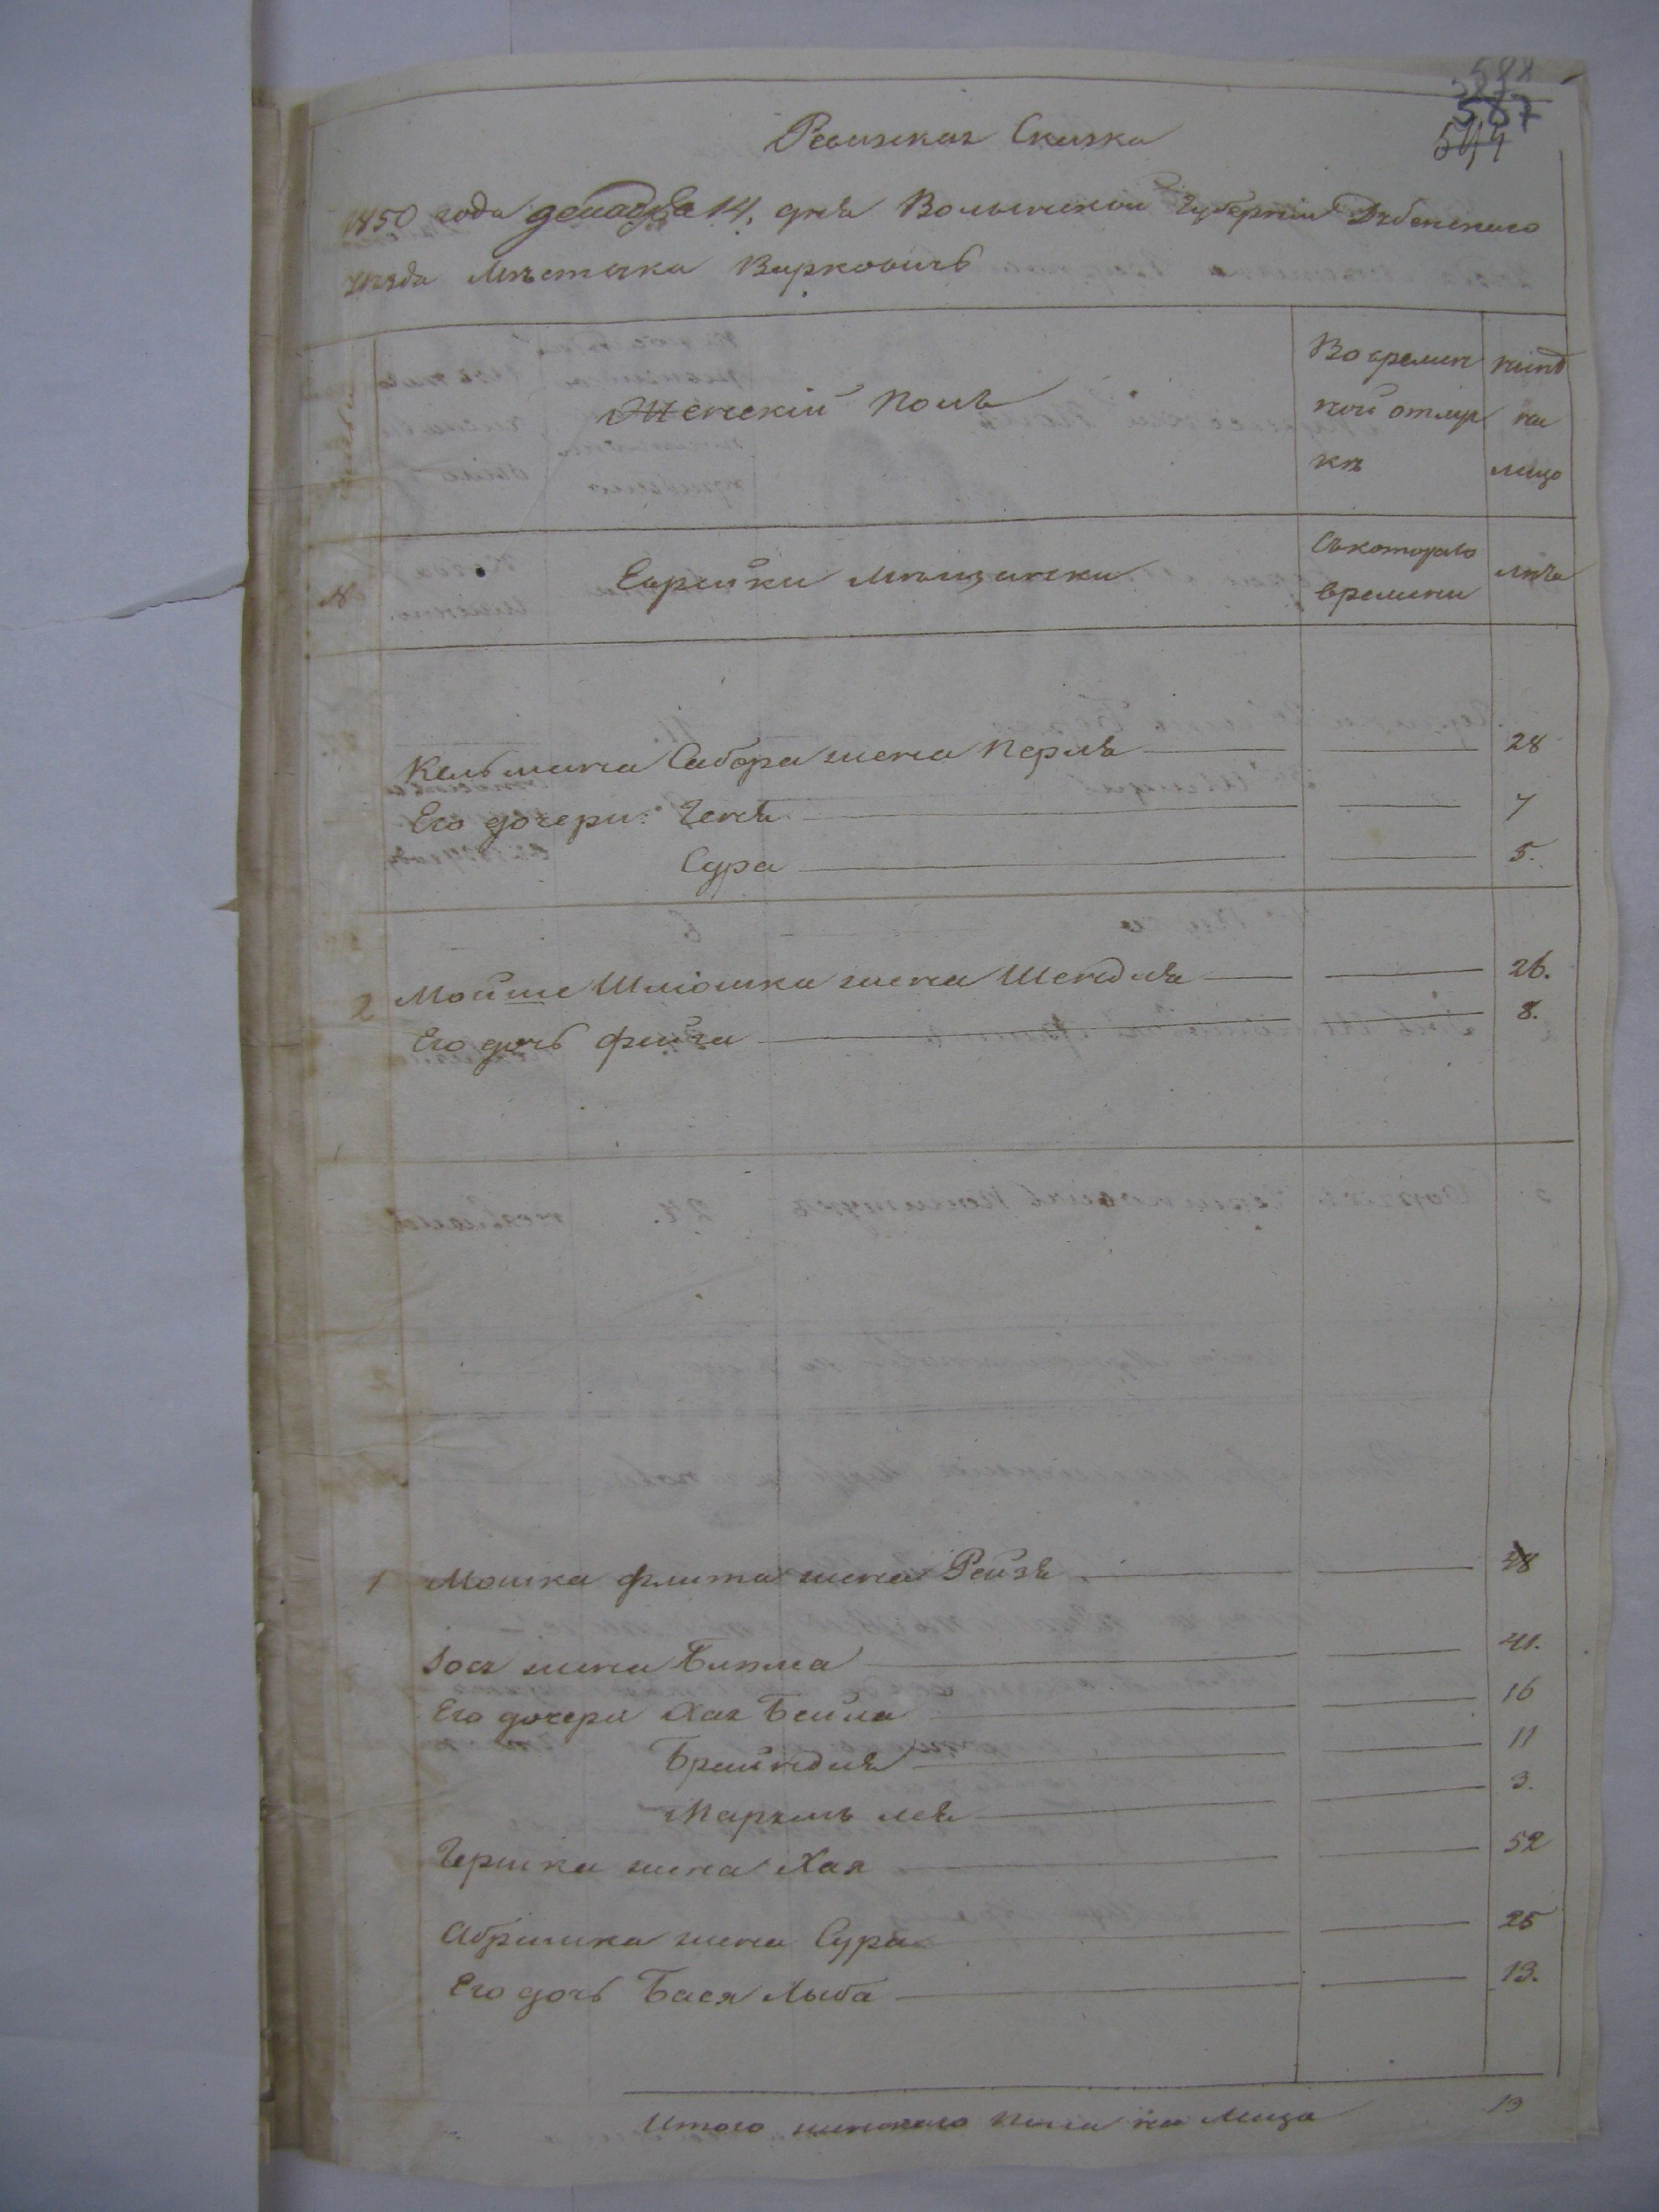 588
587
544
Ревизская Сказка
1850 года декабря 14. дня Волынской Губернии Дубенскаго
уѣзда Мѣстечка Варковичь
Женскій полъ
Во времен
ной отлуч
кѣ
нынѣ
на
лицо
№
Еврейки мѣщанки
Съ котораго
времени
лѣта
Кельмана Сабора жена Перля 28
Его дочери: Геня 7
Сура 5.
2 Мойше Шлiомка жена Шендля 26.
Его дочь Фейга 8.
1 Мошка Флита жена Рейзя 48
Iося жена Блюма 41.
Его дочери Хая Бейла 16
Брайндля 11
Маръямъ Лея 3.
Гершка жена Хая 52
Абрамка жена Сура 25
Его дочь Бася Лыба 13.
Итого женскаго пола на Лицо 13